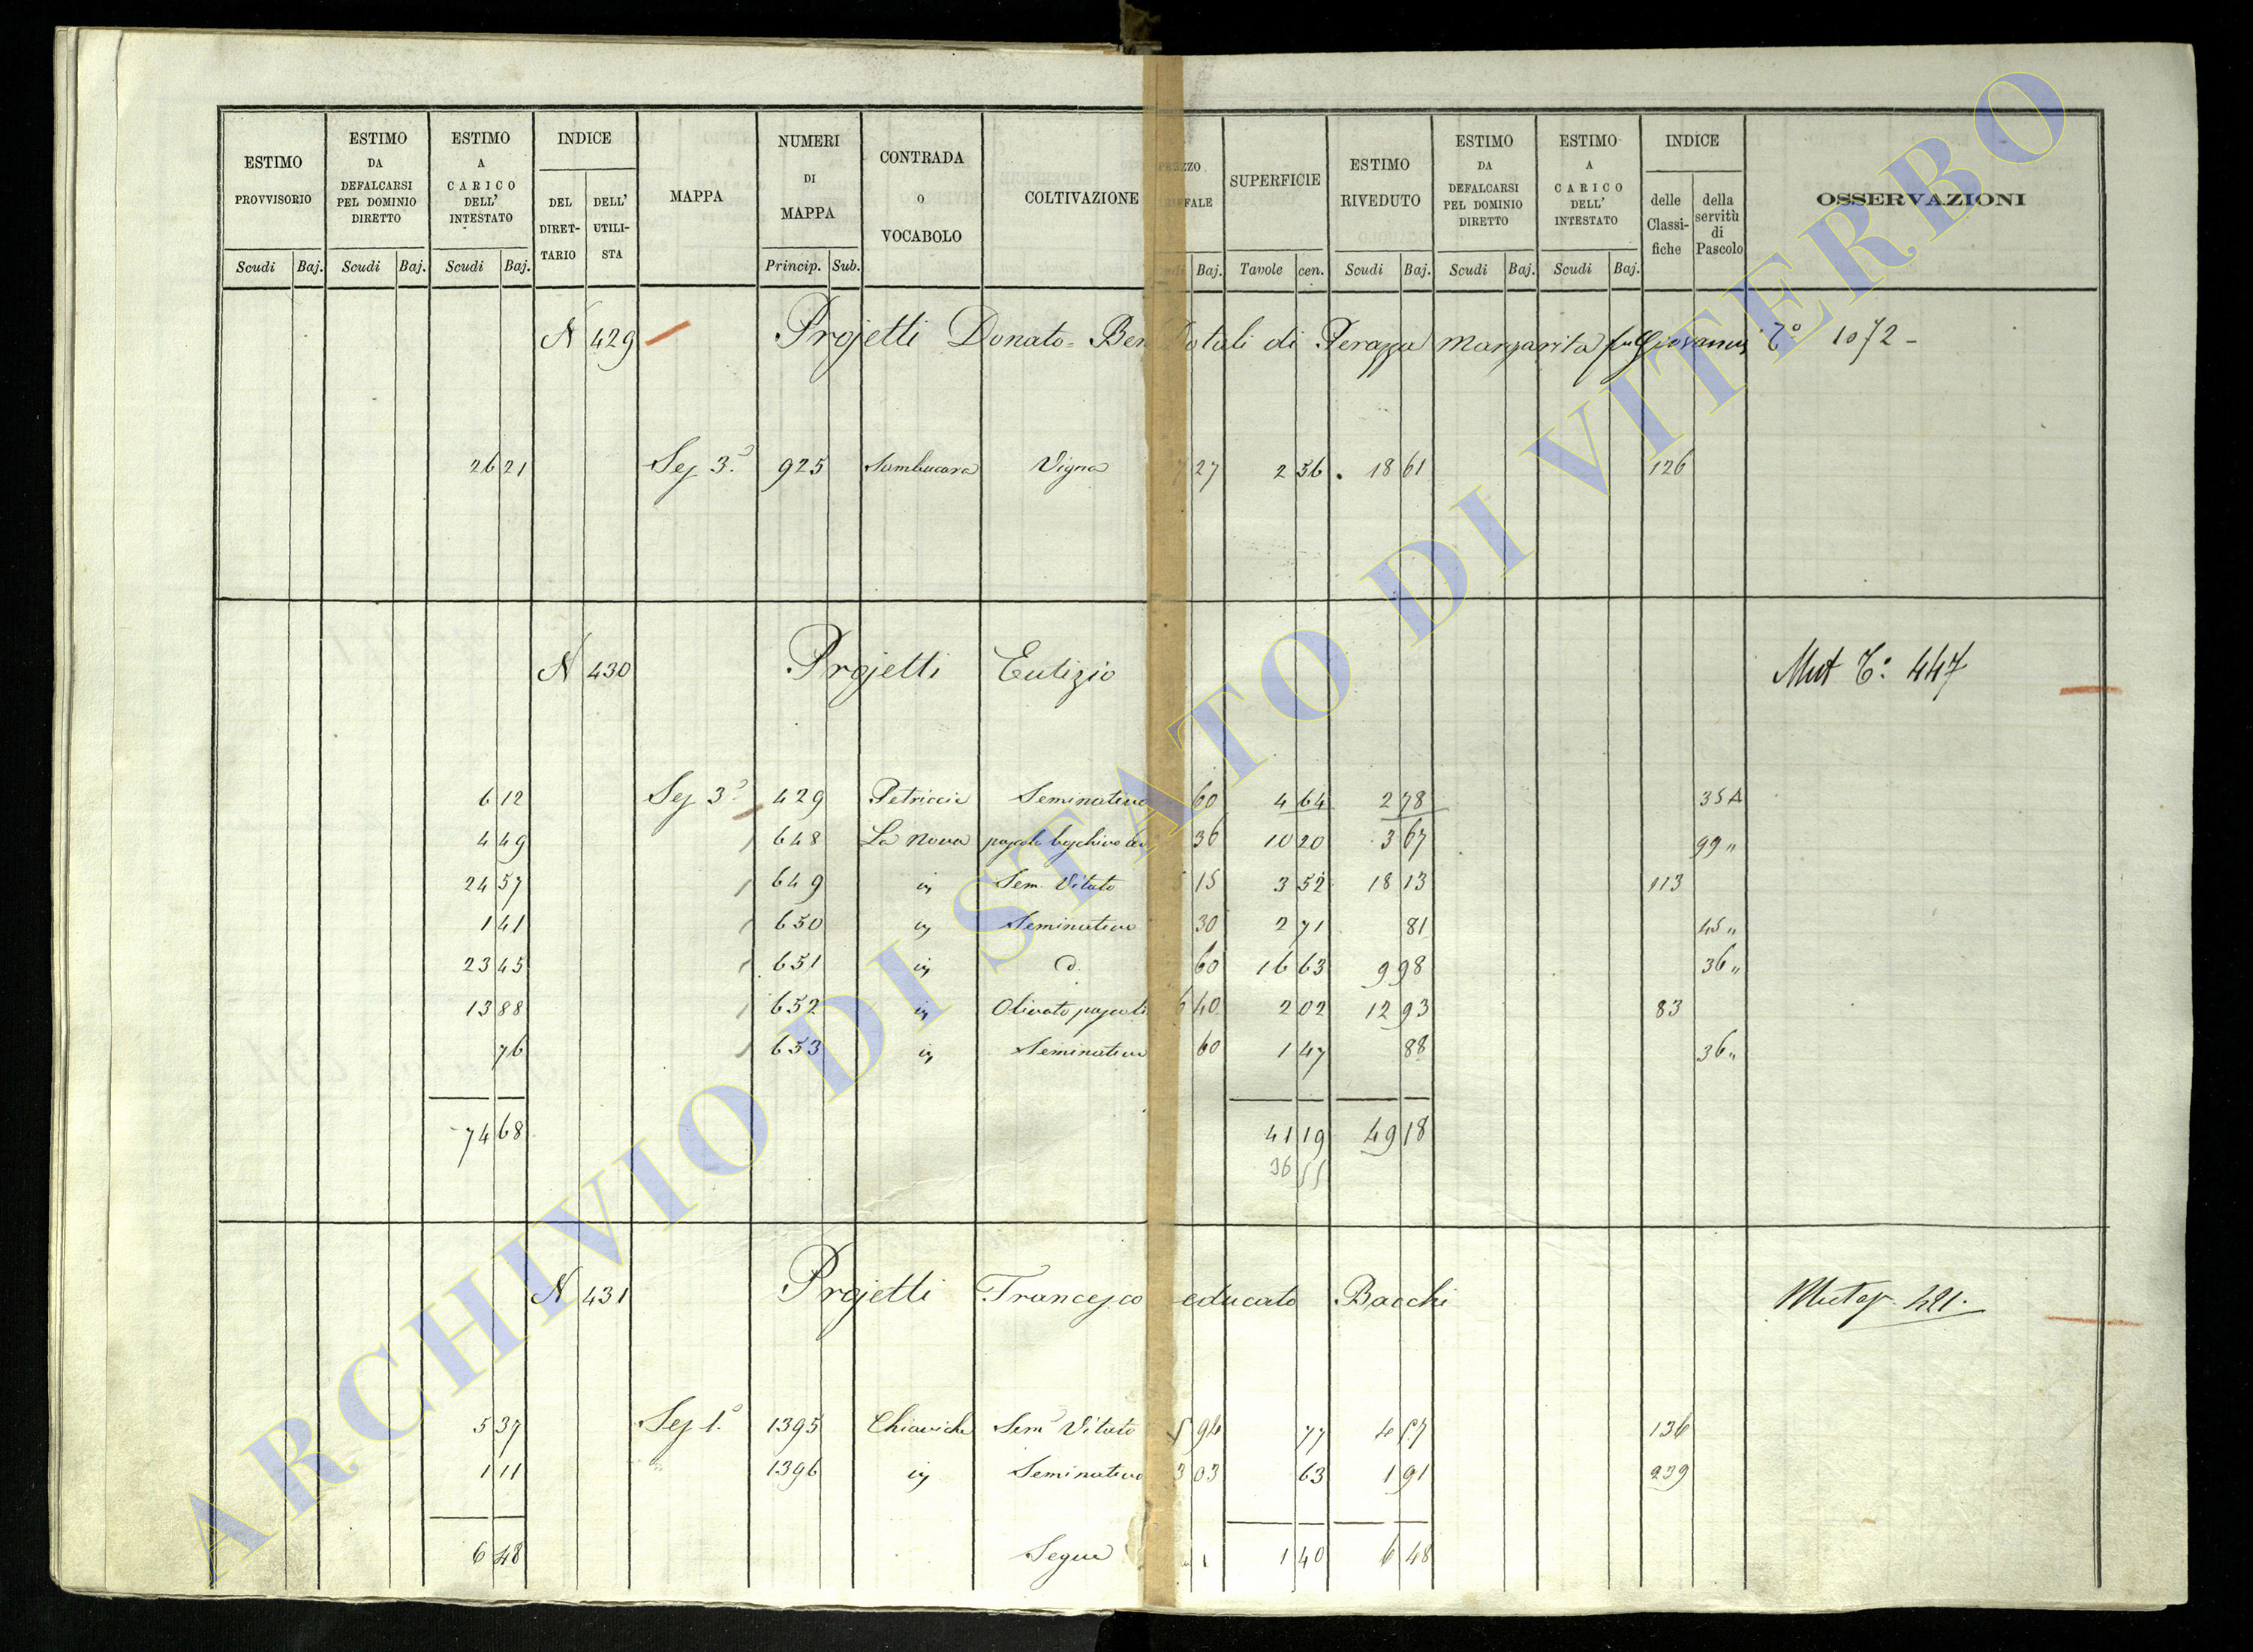 ESTIMO PROVVISORIO
ESTIMO DA DEFALCARSI PEL DOMINIO DIRETTO
ESTIMO A CARICO DELL' INTESTATO
INDICE
DEL DIRET- TARIO
DELL' UTILI- STA
MAPPA
NUMERI DI MAPPA
CONTRADA O VOCABOLO
COLTIVAZIONE
SUPERFICIE
ESTIMO RIVEDUTO
ESTIMO DA DEFALCARSI PEL DOMINIO DIRETTO
ESTIMO A CARICO DELL' INTESTATO
INDICE
delle Classi- fiche
della servitù di Pascolo
OSSERVAZIONI
Scudi Baj. Scudi Baj. Scudi Baj. Princip. Sub. Baj. Tavole cen. Scudi Baj. Scudi Baj. Scudi Baj.
N 429 Projetti Donato = Ben Dotali di Perazza Margarita fu Giovanni T.º 1072 -
26 21 Sez 3.ª 925 Sambucara Vigna 7 27 2 56 18 61 126
N 430 Projetti Eutizio Mut T.º 447
6 12 Sez 3.ª 429 Petriccia Seminativo 60 4 64 2 78 35 A
4 49 648 La Nova 36 10 20 3 67 99 "
24 57 649 in Sem. Vitato 5 15 3 52 18 13 113
1 41 650 in Seminativo 30 2 71 81 45 "
23 45 651 in d. 60 16 63 9 98 36 "
13 88 652 in Olivato 6 40 2 02 12 93 83
76 653 in Seminativo 60 1 47 88 36 "
74 68 41 19 49 18
36 55
N 431 Projetti Francesco educato Bacchi
5 37 Sez 1.ª 1395 Chiaviche Sem. Vitato 5 94 77 4 57 136
1 11 " 1396 in Seminativo 3 03 63 1 91 239
6 48 Segue 1 40 6 48
ARCHIVIO DI STATO DI VITERBO